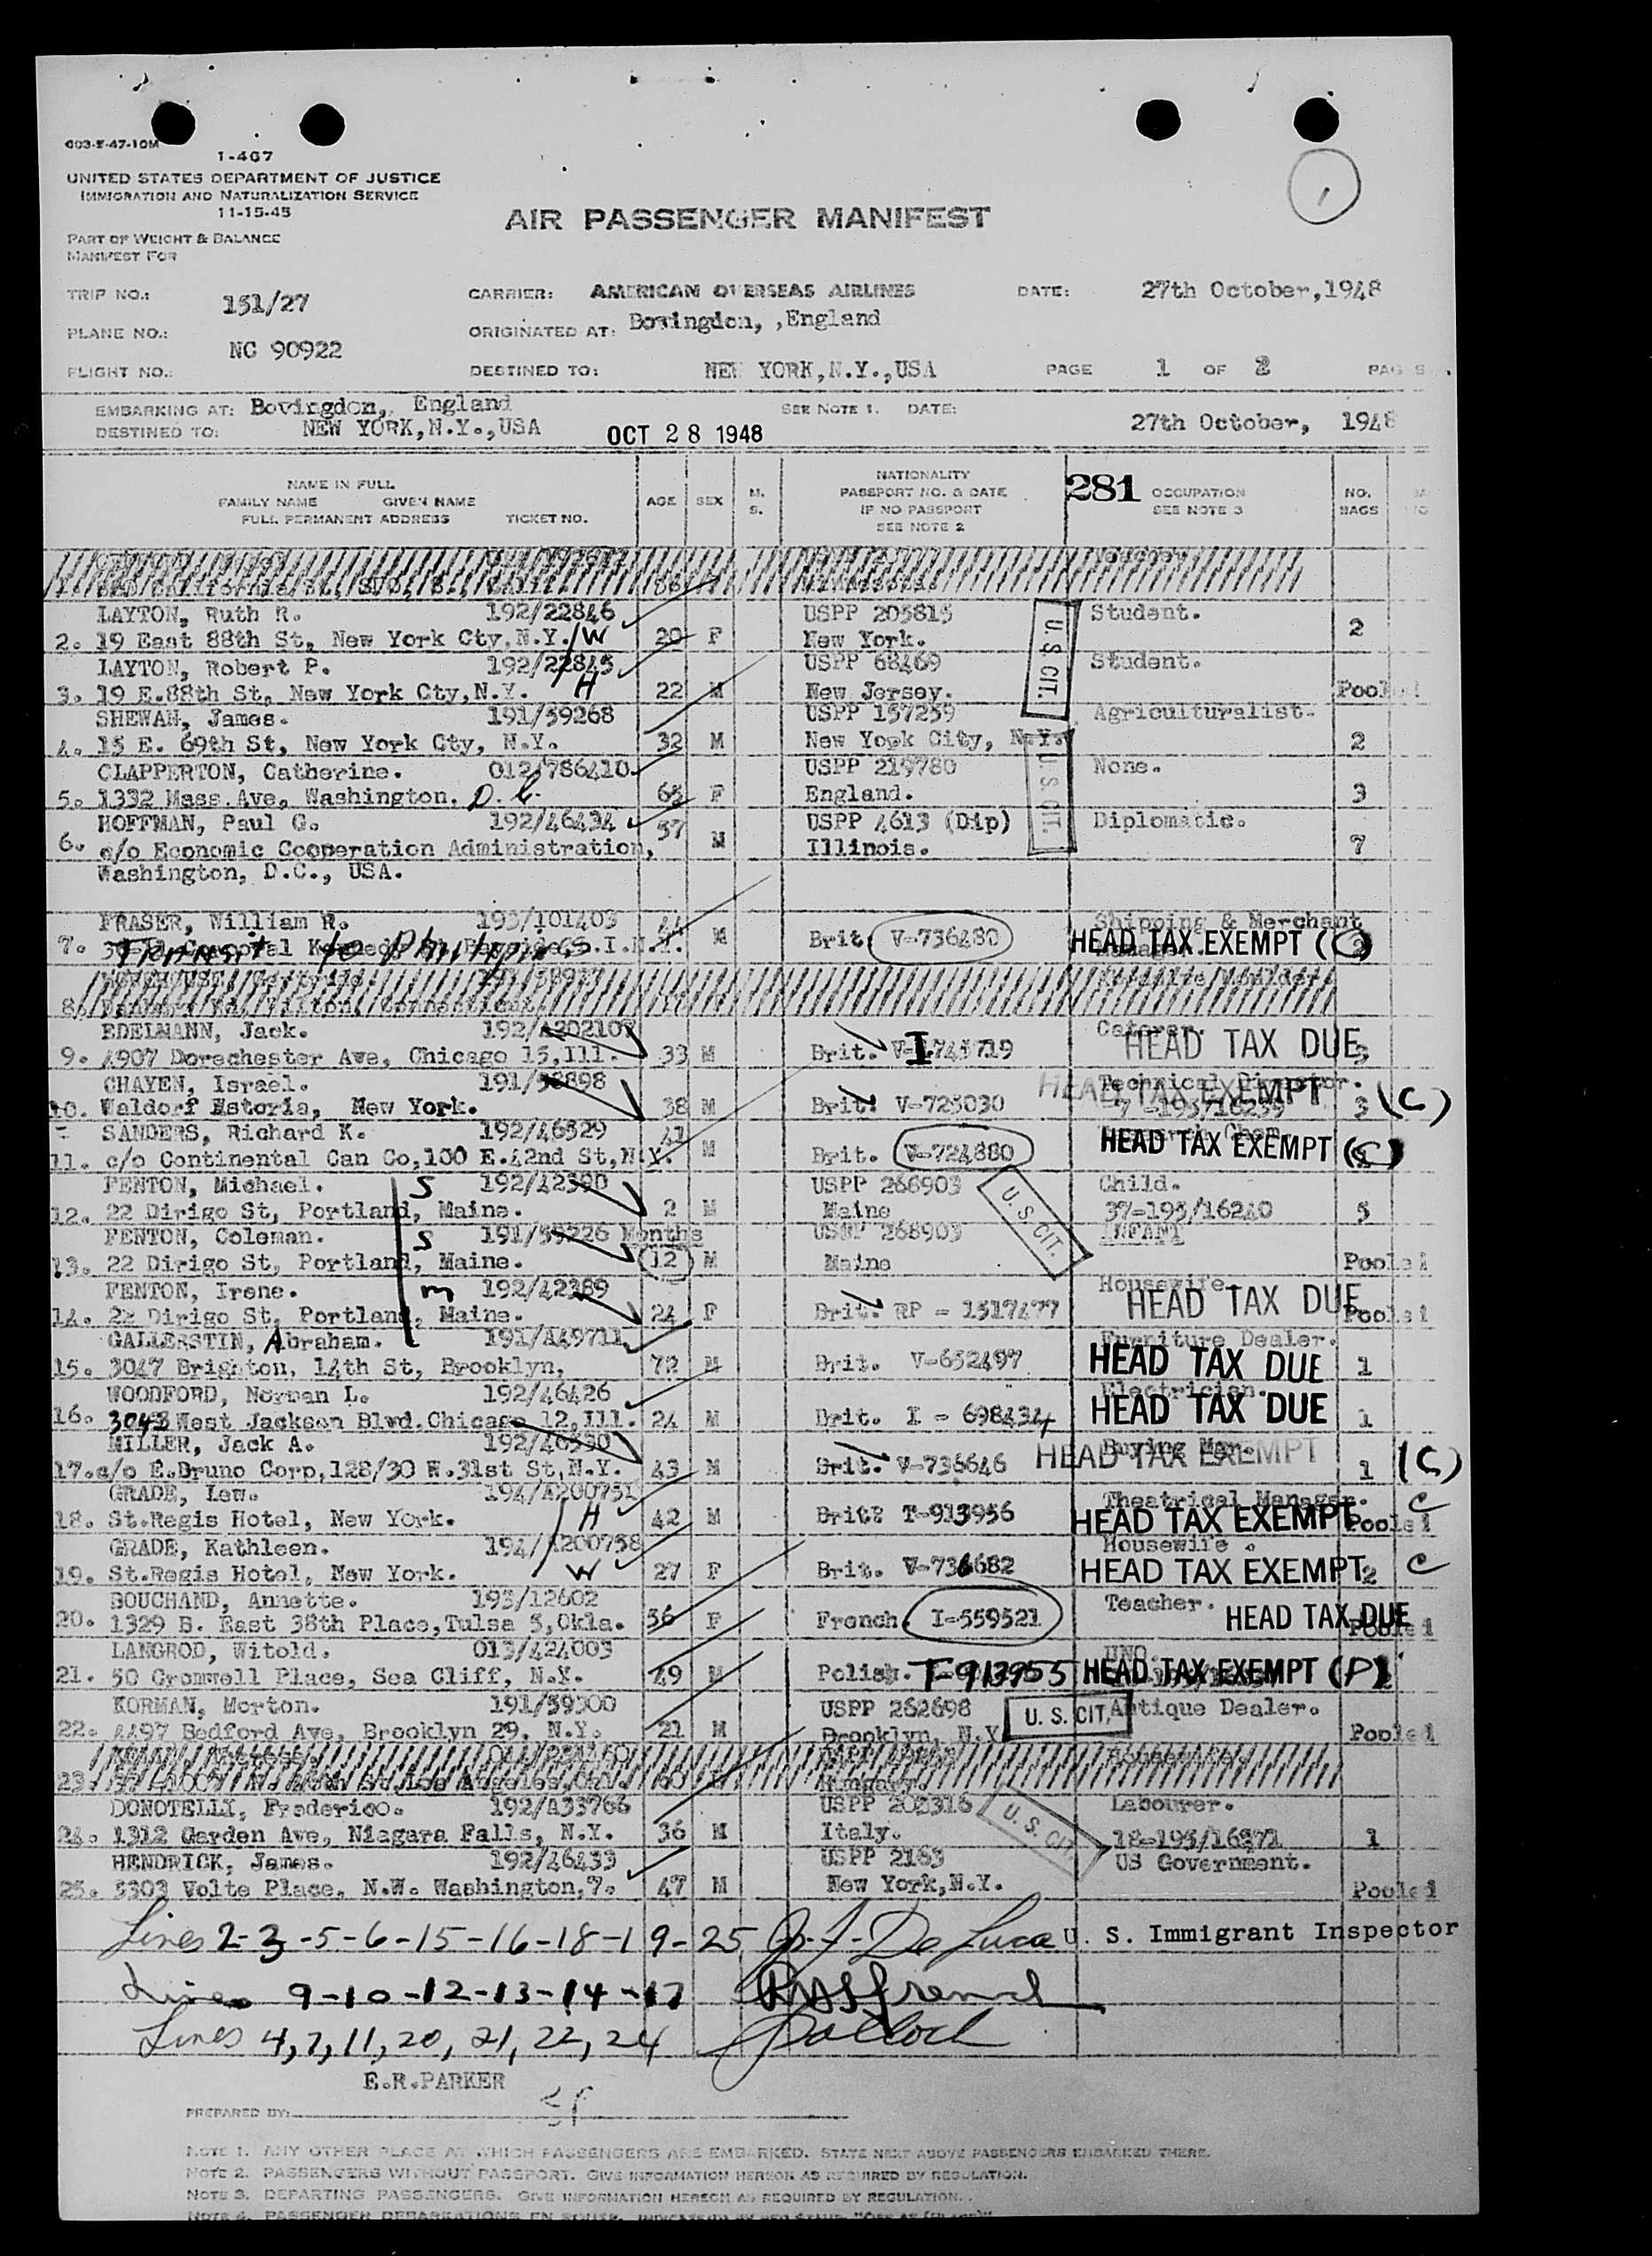 003-E-47-10M
I-467
UNITED STATES DEPARTMENT OF JUSTICE
IMMIGRATION AND NATURALIZATION SERVICE
11-15-45
AIR PASSENGER MANIFEST
PART OF WEIGHT & BALANCE
MANIFEST FOR
TRIP NO.: 151/27 CARRIER: AMERICAN OVERSEAS AIRLINES DATE: 27th October,1948
PLANE NO.: NC 90922 ORIGINATED AT: Bovingdon, ,England
FLIGHT NO.: DESTINED TO: NEW YORK,N.Y.,USA PAGE 1 OF 2
EMBARKING AT: Bovingdon, England SEE NOTE 1. DATE: 27th October, 1948
DESTINED TO: NEW YORK,N.Y.,USA OCT 28 1948
NAME IN FULL
FAMILY NAME GIVEN NAME
FULL PERMANENT ADDRESS TICKET NO.
AGE SEX M. S.
NATIONALITY
PASSPORT NO. & DATE
IF NO PASSPORT
SEE NOTE 2
281 OCCUPATION
SEE NOTE 3
NO. BAGS
LAYTON, Ruth R. 192/22846 USPP 205815 Student.
2. 19 East 88th St, New York Cty,N.Y. W 20 F New York. 2
LAYTON, Robert P. 192/22845 USPP 68469 U.S. CIT. Student.
3. 19 E.88th St, New York Cty,N.Y. H 22 M New Jersey. Pooled
SHEWAN, James. 191/59268 USPP 157259 Agriculturalist.
4. 15 E. 69th St, New York Cty, N.Y. 32 M New York City, N.Y. 2
CLAPPERTON, Catherine. 012/786410 USPP 219780 U.S. CIT. None.
5. 1332 Mass.Ave, Washington. D.C. 65 F England. 3
HOFFMAN, Paul G. 192/46434 57 USPP 4613 (Dip) Diplomatic.
6. c/o Economic Cooperation Administration, M Illinois. 7
Washington, D.C., USA.
FRASER, William R. 193/101403 44 Shipping & Merchant
7. Transit to Philippines M Brit. V-736480 HEAD TAX EXEMPT (C)
8.
EDELMANN, Jack. 192/A202107 Caterer.
9. 4907 Dorechester Ave, Chicago 15,Ill. 33 M Brit. I 745719 HEAD TAX DUE 3
CHAYEN, Israel. 191/58898 Technical Director.
10. Waldorf Estoria, New York. 38 M Brit. V-725030 HEAD TAX EXEMPT 3 (C)
SANDERS, Richard K. 192/46529 41
11. c/o Continental Can Co,100 E.42nd St,N.Y. M Brit. V-724880 HEAD TAX EXEMPT (C)
FENTON, Michael. S 192/42390 USPP 268903 Child.
12. 22 Dirigo St, Portland, Maine. 2 M Maine U.S. CIT. 37-195/16240 5
FENTON, Coleman. S 191/59226 Months USPP 268903 INFANT
13. 22 Dirigo St, Portland, Maine. 12 M Maine Pooled
FENTON, Irene. m 192/42389 Housewife.
14. 22 Dirigo St, Portland, Maine. 24 F Brit. RP = 1517477 HEAD TAX DUE Pooled
GALLERSTIN, Abraham. 191/A49711 Furniture Dealer.
15. 3047 Brighton, 14th St, Brooklyn, 72 M Brit. V-652497 HEAD TAX DUE 1
WOODFORD, Norman L. 192/46426 Electrician.
16. 3043 West Jackson Blvd.Chicago 12,Ill. 24 M Brit. I = 698434 HEAD TAX DUE 1
MILLER, Jack A. 192/46530 Buying Man.
17. c/o E.Bruno Corp,128/30 W.31st St,N.Y. 43 M Brit. V-736646 HEAD TAX EXEMPT 1 (C)
GRADE, Lew. 194/A200751 Theatrical Manager. C
18. St.Regis Hotel, New York. H 42 M Brit. T-913956 HEAD TAX EXEMPT Pooled
GRADE, Kathleen. 194/A200758 Housewife.
19. St.Regis Hotel, New York. W 27 F Brit. V-736682 HEAD TAX EXEMPT 2 C
BOUCHAND, Annette. 193/12602 Teacher.
20. 1329 B. East 38th Place,Tulsa 5,Okla. 56 F French. I=559521 HEAD TAX DUE Pooled
LANGROD, Witold. 013/424003 UNO.
21. 50 Cromwell Place, Sea Cliff, N.Y. 49 M Polish. T-913955 HEAD TAX EXEMPT (P)
KORMAN, Morton. 191/59300 USPP 262698 U. S. CIT. Antique Dealer.
22. 4497 Bedford Ave, Brooklyn 29, N.Y. 21 M Brooklyn, N.Y. Pooled
23. Hungary.
DONOTELLI, Frederico. 192/A33766 USPP 202316 Labourer.
24. 1312 Garden Ave, Niagara Falls, N.Y. 36 M Italy. U. S. CIT. 18-195/16371 1
HENDRICK, James. 192/46433 USPP 2163 US Government.
25. 3303 Volte Place, N.W. Washington,7. 47 M New York,N.Y. Pooled
Lines 2-3-5-6-15-16-18-19-25 De Luca U. S. Immigrant Inspector
Lines 9-10-12-13-14-17
Lines 4,7,11,20,21,22,24
E.R.PARKER
PREPARED BY:
NOTE 1. ANY OTHER PLACE AT WHICH PASSENGERS ARE EMBARKED. STATE NEXT ABOVE PASSENGERS EMBARKED THERE.
NOTE 2. PASSENGERS WITHOUT PASSPORT. GIVE INFORMATION HEREON AS REQUIRED BY REGULATION.
NOTE 3. DEPARTING PASSENGERS. GIVE INFORMATION HEREON AS REQUIRED BY REGULATION.